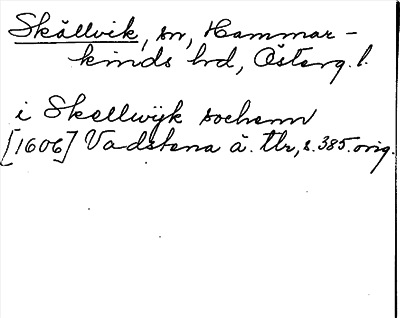 Skällvik, sn, Hammar-
kinds hd, Österg. l.
i Skellwijk sochenn
[1606] Vadstena ä. tlr, s. 385. orig.